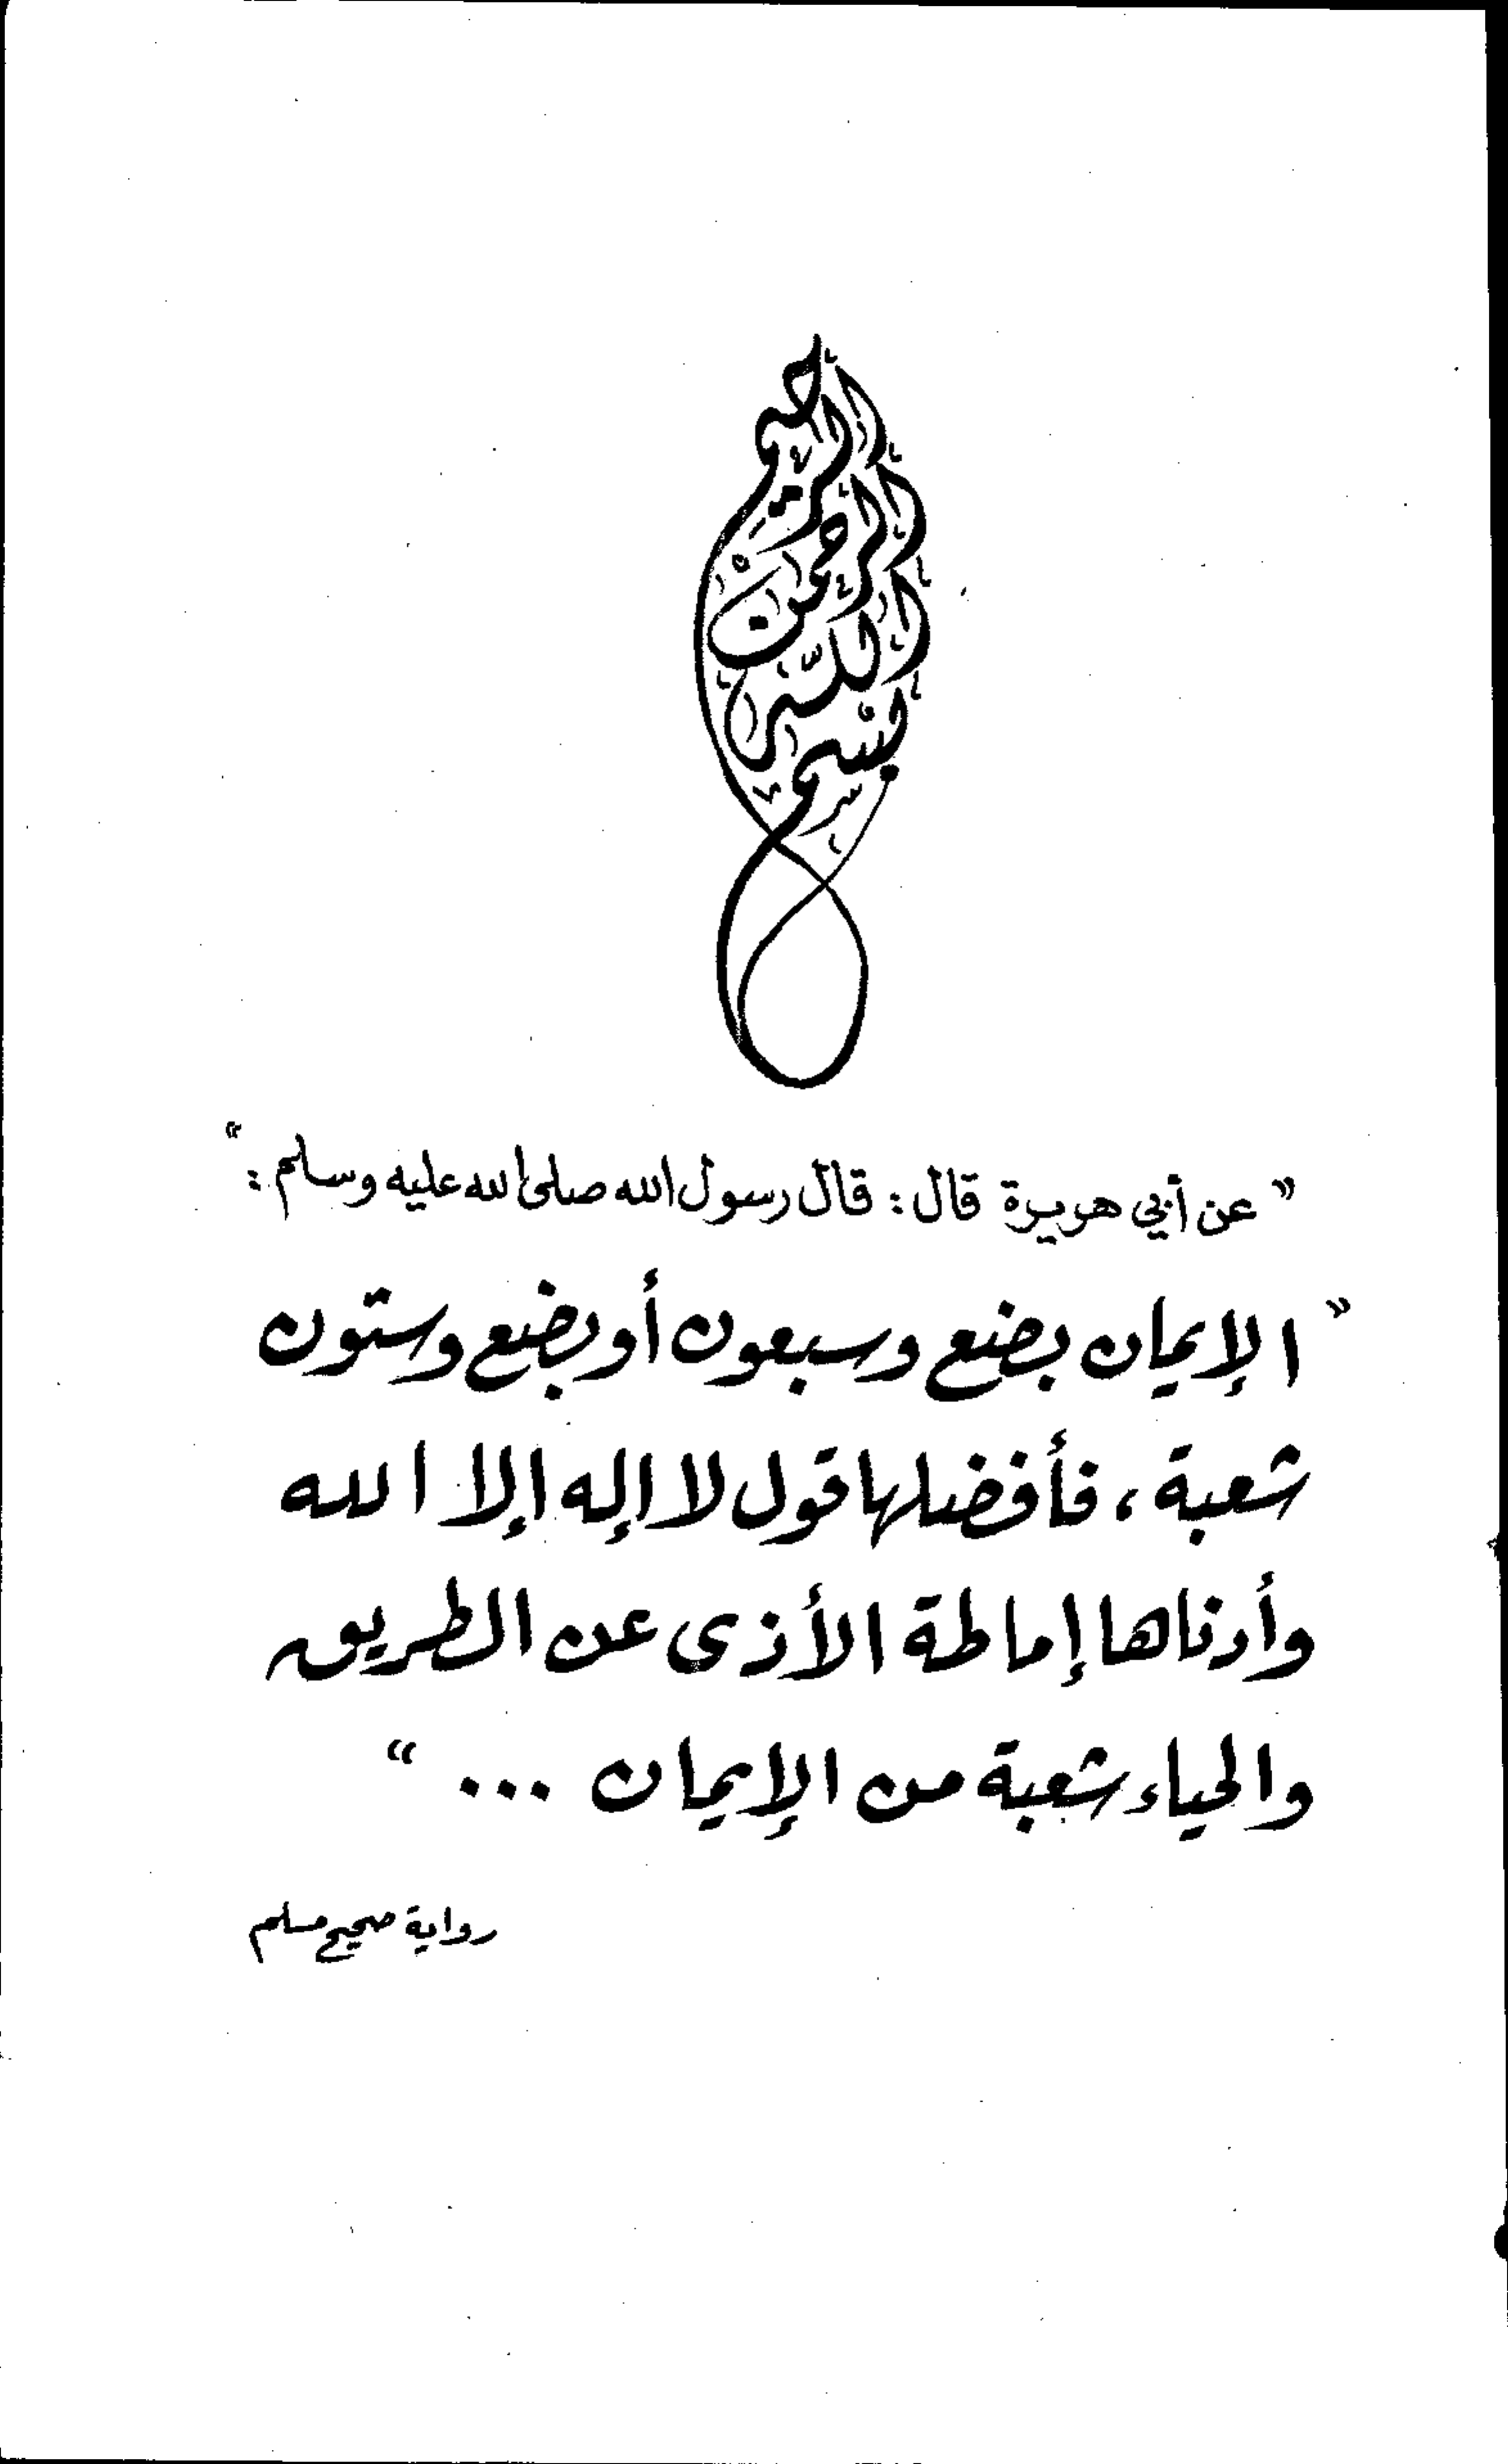 بسم الله الرحمن الرحيم
"عن أبي هريرة قال: قال رسول الله صلى الله عليه وسلم:"
"الإيمان بضع وسبعون أو بضع وستون
شعبة، فأفضلها قول لا إله إلا الله
وأدناها إماطة الأذى عن الطريق
والحياء شعبة من الإيمان ..."
رواية صحيح مسلم